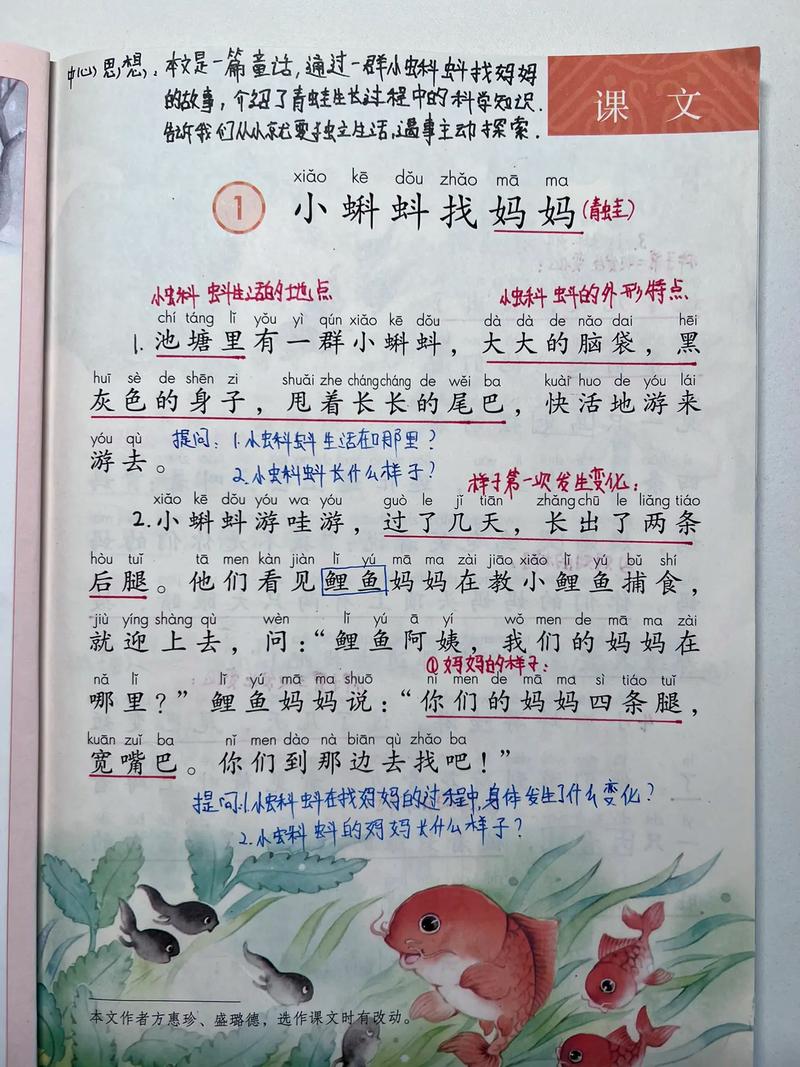 中心思想：本文是一篇童话，通过一群小蝌蚪找妈妈
的故事，介绍了青蛙生长过程中的科学知识.
告诉我们从小就要独立生活，遇事主动探索.
课文
xiǎo kē dǒu zhǎo mā ma
1 小蝌蚪找妈妈(青蛙)
小蝌蚪生活的地点 小蝌蚪的外形特点
chí táng lǐ yǒu yì qún xiǎo kē dǒu dà dà de nǎo dai hēi
1.池塘里有一群小蝌蚪，大大的脑袋，黑
huī sè de shēn zi shuǎi zhe cháng cháng de wěi ba kuài huo de yóu lái
灰色的身子，甩着长长的尾巴，快活地游来
yóu qù
游去。
提问：1.小蝌蚪生活在哪里？
2.小蝌蚪长什么样子？
样子第一次发生变化：
xiǎo kē dǒu yóu wa yóu guò le jǐ tiān zhǎng chū le liǎng tiáo
2.小蝌蚪游哇游，过了几天，长出了两条
hòu tuǐ tā men kàn jiàn lǐ yú mā ma zài jiāo xiǎo lǐ yú bǔ shí
后腿。他们看见鲤鱼妈妈在教小鲤鱼捕食，
jiù yíng shàng qù wèn lǐ yú ā yí wǒ men de mā ma zài
就迎上去，问：“鲤鱼阿姨，我们的妈妈在
①妈妈的样子：
nǎ lǐ lǐ yú mā ma shuō nǐ men de mā ma sì tiáo tuǐ
哪里？”鲤鱼妈妈说：“你们的妈妈四条腿，
kuān zuǐ ba nǐ men dào nà biān qù zhǎo ba
宽嘴巴。你们到那边去找吧！”
提问：1.小蝌蚪在找妈妈的过程中，身体发生了什么变化？
2.小蝌蚪的妈妈长什么样子？
本文作者方惠珍、盛璐德，选作课文时有改动。